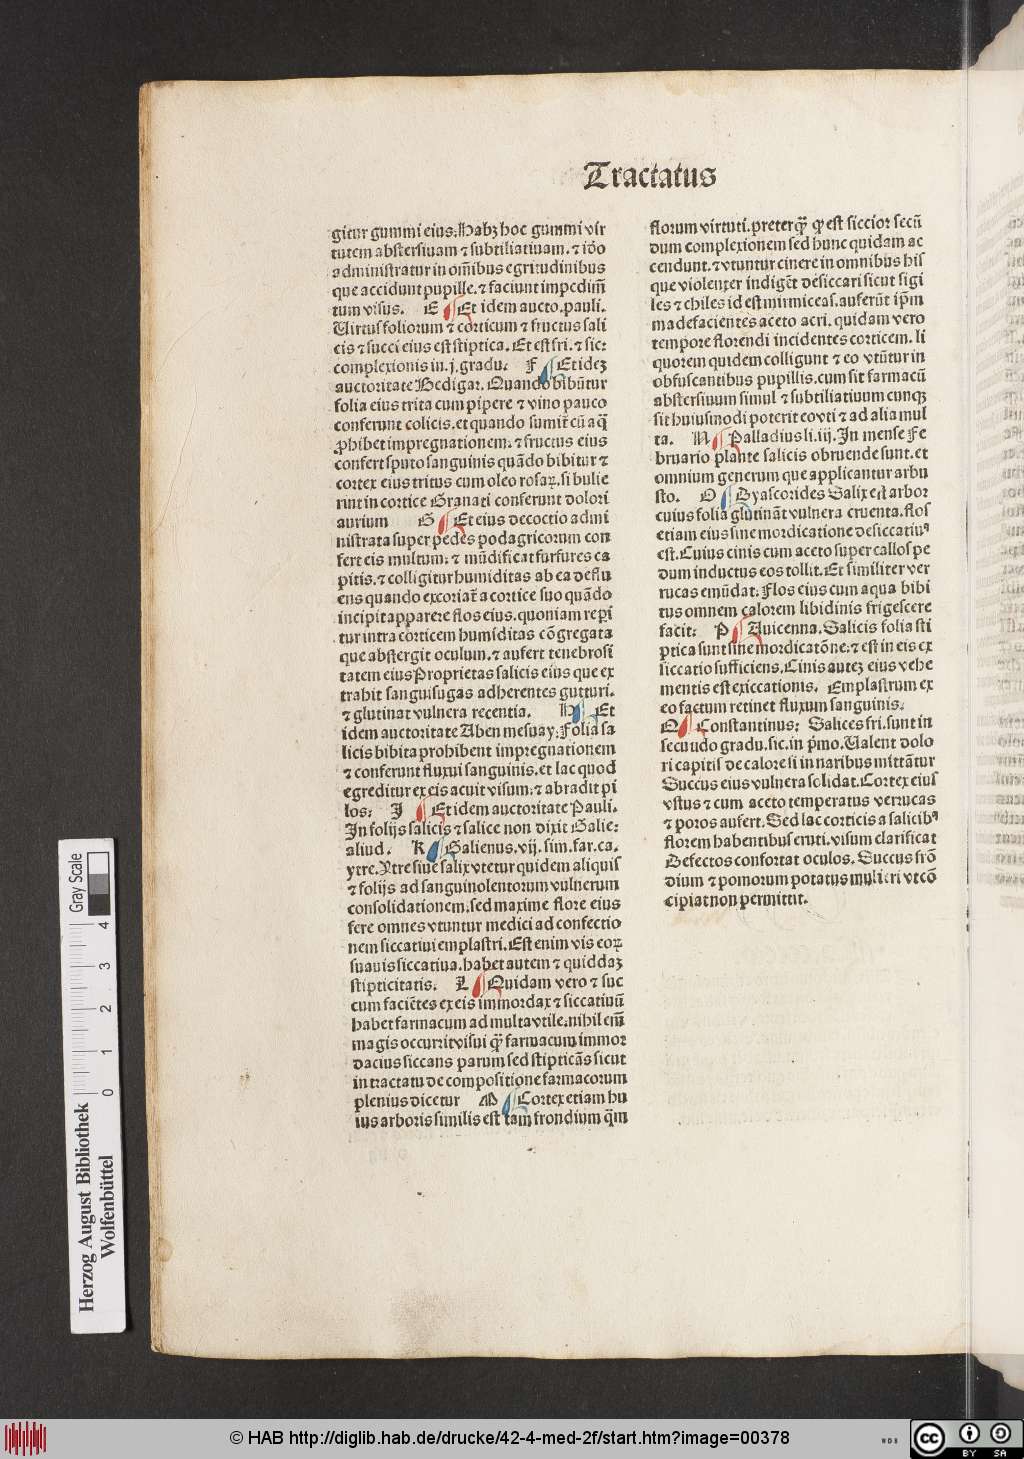 Tractatus
gitur gummi eius. Habꝫ hoc gummi vir
tutem abstersiuam ⁊ subtiliatiuam. ⁊ iđo
administratur in om̄ibus egritudinibus
que accidunt pupille. ⁊ faciunt impedim̄
tum visus. E Et idem aucto. pauli.
Uirtus foliorum ⁊ corticum ⁊ fructus sali
cis ⁊ succi eius est stiptica. Et est fri. ⁊ sic:
complexionis in .j. gradu. F Et idez
auctoritate Bedigar. Quando bibūtur
folia eius trita cum pipere ⁊ vino pauco
conferunt colicis. et quando sumit̄ cū aq̄
ꝓhibet impregnationem. ⁊ fructus eius
confert sputo sanguinis quādo bibitur ⁊
cortex eius tritus cum oleo rosaꝝ. si bulie
rint in cortice Granati conferunt dolori
aurium G Et eius decoctio admi
nistrata super pedes podagricorum con
fert eis multum. ⁊ mūdificat furfures ca
pitis. ⁊ colligitur humiditas ab ea deflu
ens quando excoriat̄ a cortice suo quādo
incipit apparere flos eius. quoniam repi
tur intra corticem humiditas cōgregata
que abstergit oculum. ⁊ aufert tenebrosi
tatem eius Proprietas salicis eius que ex
trahit sanguisugas adherentes gutturi.
⁊ glutinat vulnera recentia. H Et
idem auctoritate Aben mesuay. Folia sa
licis bibita prohibent impregnationem
⁊ conferunt fluxui sanguinis. et lac quod
egreditur ex eis acuit visum. ⁊ abradit pi
los: I Et idem auctoritate Pauli.
In folijs salicis ⁊ salice non dixit Galie:
aliud. K Galienus. vij. sim. far. ca.
ytre. Ytre siue salix vtetur quidem aliquis
⁊ folijs ad sanguinolentorum vulnerum
consolidationem. sed maxime flore eius
fere omnes vtuntur medici ad confectio
nem siccatiui emplastri. Est enim vis eoꝝ
suauis siccatiua. habet autem ⁊ quiddaz
stipticitatis. L Quidam vero ⁊ suc
cum faciētes ex eis immordax ⁊ siccatiuū
habet farmacum ad multa vtile. nihil em̄
magis occurrit visui q̄ farmacum immor
dacius siccans parum sed stipticās sicut
in tractatu de compositione farmacorum
plenius dicetur M Cortex etiam hu
ius arboris similis est tam frondium q̄m
florum virtuti. preterq̄ ꝙ est siccior secū
dum complexionem sed hunc quidam ac
cendunt. ⁊ vtuntur cinere in omnibus his
que violenter indigēt desiccari sicut sigi
les ⁊ chiles id est mirmiceas. auferūt ip̄m
madefacientes aceto acri. quidam vero
tempore florendi incidentes corticem. li
quorem quidem colligunt ⁊ eo vtūtur in
obfuscantibus pupillis. cum sit farmacū
abstersiuum simul ⁊ subtiliatiuum cunqꝫ
sit huiusmodi poterit eo vti ⁊ ad alia mul
ta. N Palladius li. iij. In mense Fe
bruario plante salicis obruende sunt. et
omnium generum que applicantur arbu
sto. O Dyascorides Salix est arbor
cuius folia glutināt vulnera cruenta. flos
etiam eius sine mordicatione desiccatiuꝰ
est. Cuius cinis cum aceto super callos pe
dum inductus eos tollit. Et similiter ver
rucas emūdat. Flos eius cum aqua bibi
tus omnem calorem libidinis frigescere
facit: P Auicenna. Salicis folia sti
ptica sunt sine mordicatōne. ⁊ est in eis ex
siccatio sufficiens. Cinis autez eius vehe
mentis est exiccationis. Emplastrum ex
eo factum retinet fluxum sanguinis.
Q Constantinus: Salices fri. sunt in
secundo gradu. sic. in p̄mo. Ualent dolo
ri capitis de calore si in naribus mittātur
Succus eius vulnera solidat. Cortex eius
vstus ⁊ cum aceto temperatus verrucas
⁊ poros aufert. Sed lac corticis a salicibꝰ
florem habentibus eruti. visum clarificat
Defectos confortat oculos. Succus frō
dium ⁊ pomorum potatus mulieri vt cō
cipiat non permittit.
Gray Scale
0 1 2 3 4
Herzog August Bibliothek
Wolfenbüttel
© HAB http://diglib.hab.de/drucke/42-4-med-2f/start.htm?image=00378
WDB
cc BY SA